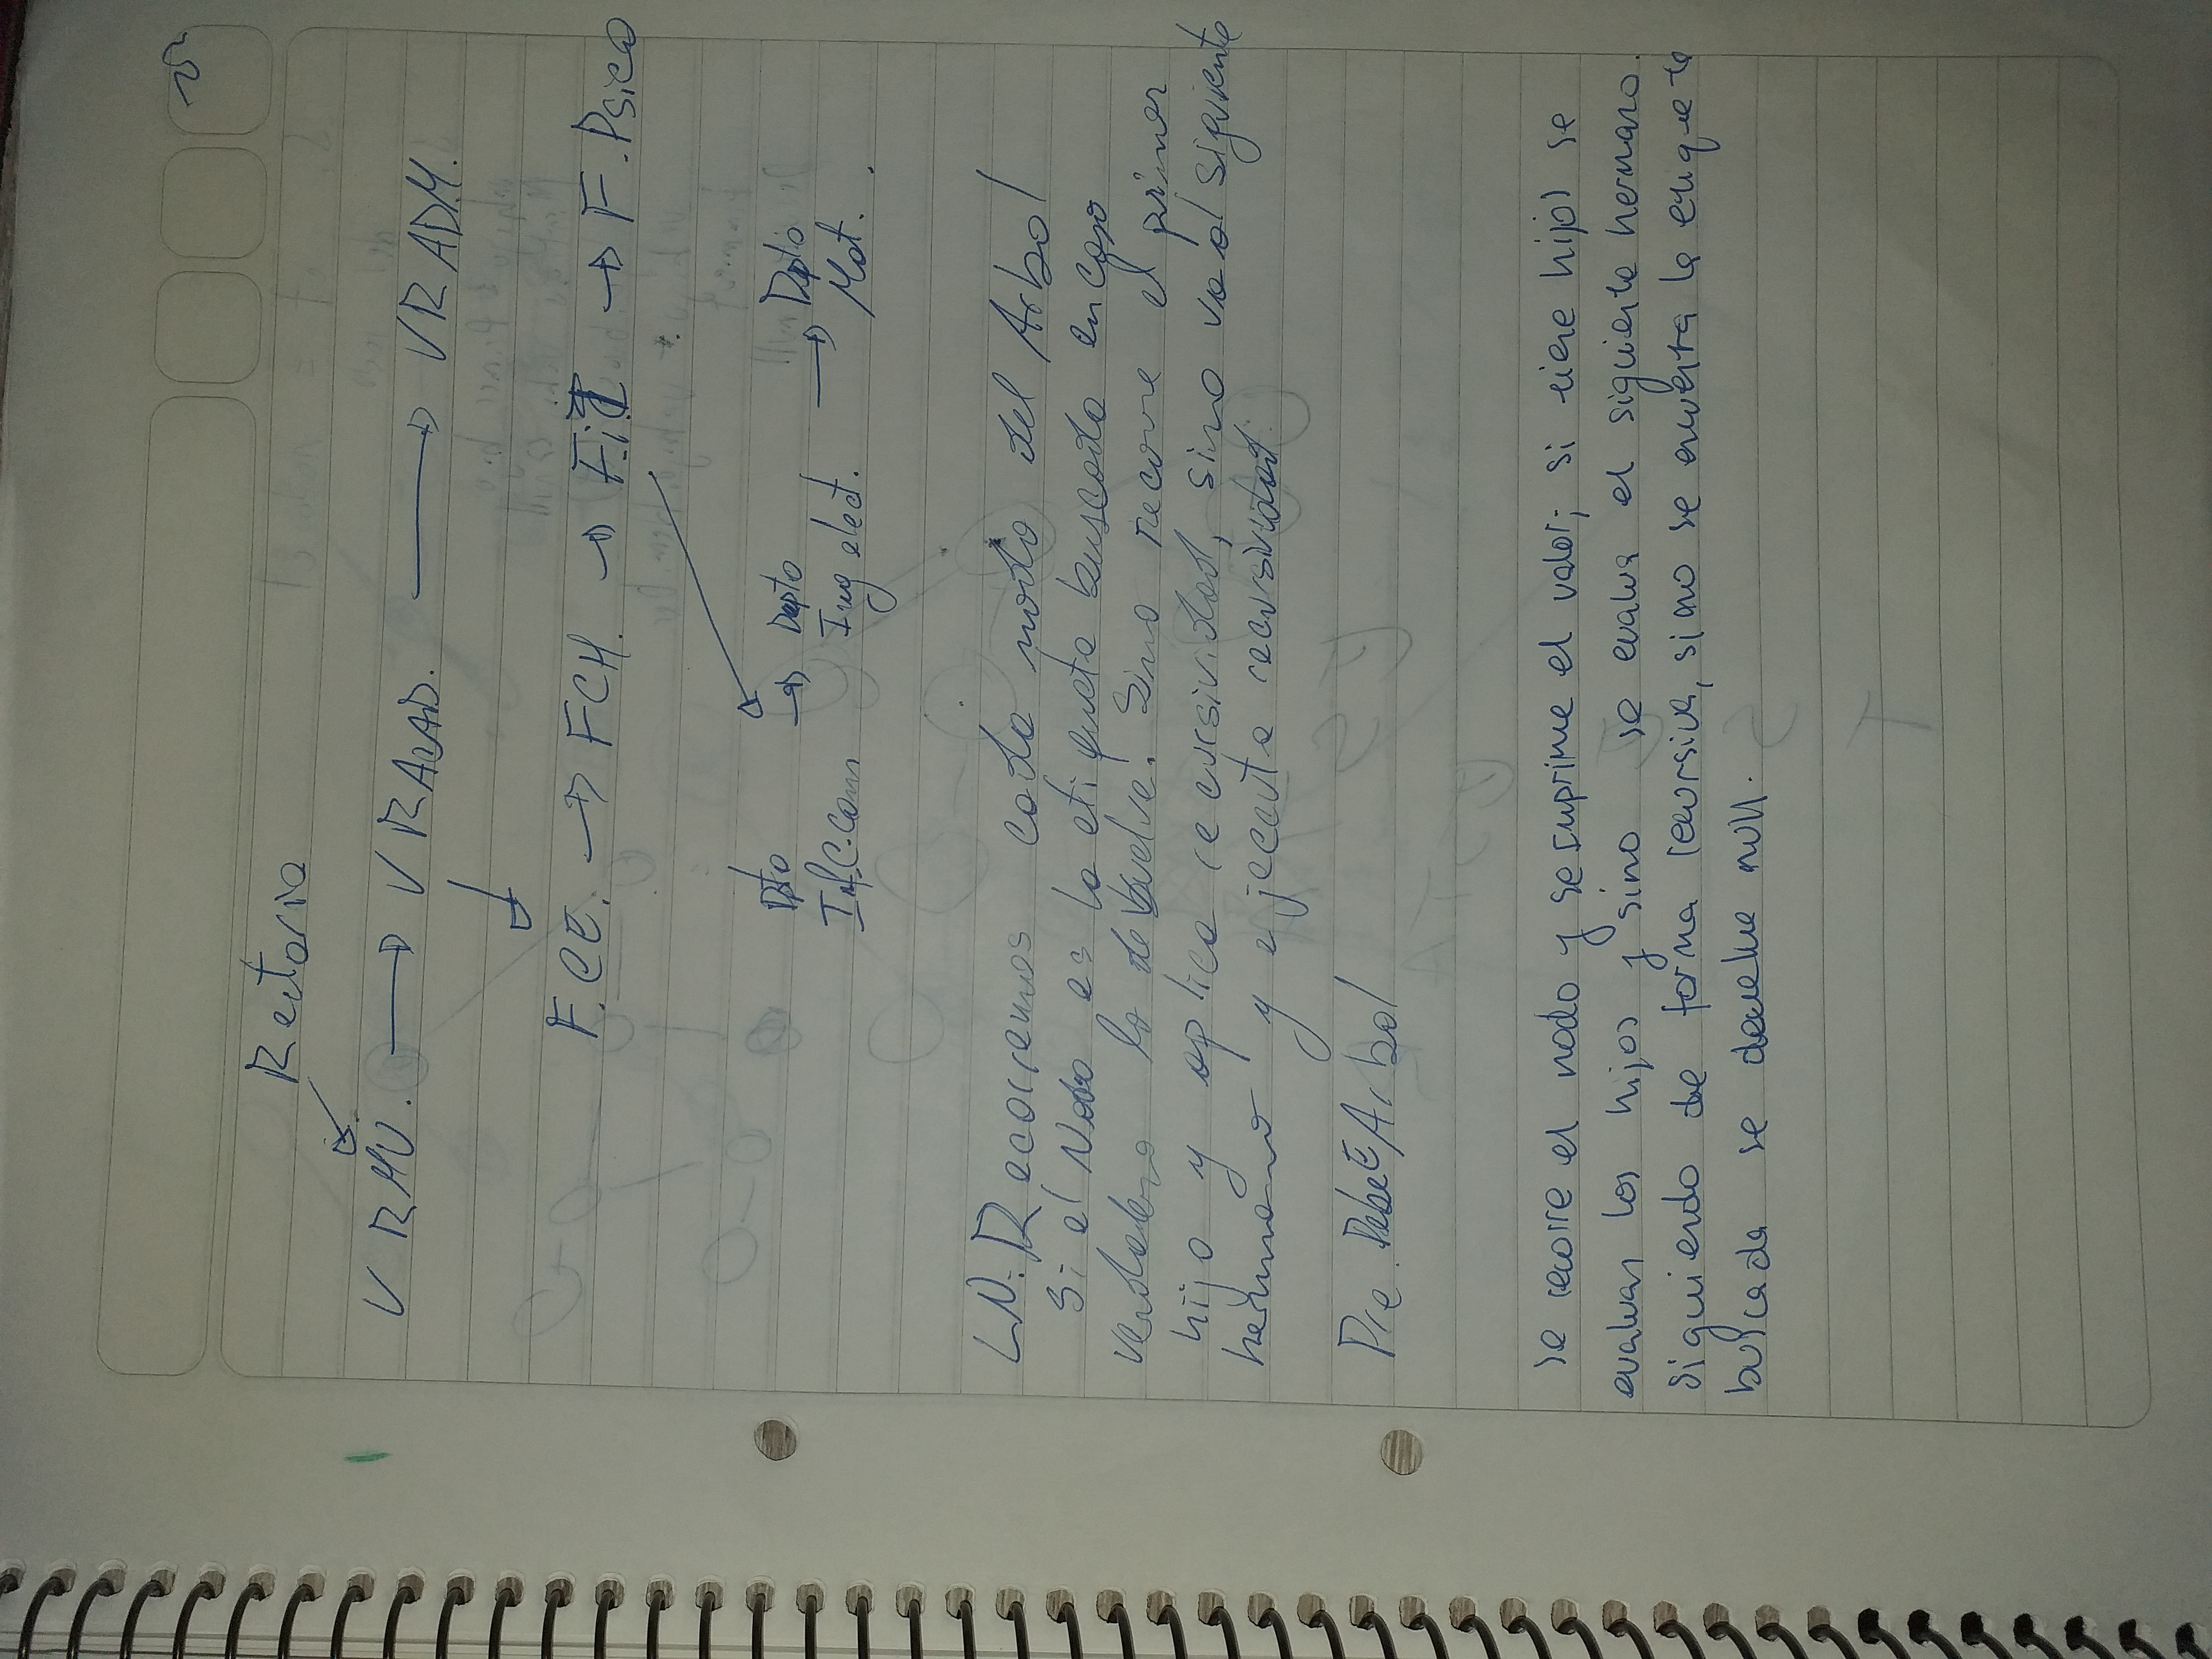 Rectoria
V RMU. → V RACAD. → VR ADM.
F.CE. → FCH. → F.i.T → F.Psico
Dpto → Depto → Depto
Inf.C.Com Ing elect. Mat.
LN: Recorremos cada nodo del Arbol
Si el Nodo es la etiqueta buscada en caso
verdadero lo devuelve. Sino recorre el primer
hijo y aplica recursividad, sino va al siguiente
hermano y ejecuta recursividad.
Pre. Debe E Arbol
se recorre el nodo y se imprime el valor; si tiene hijos se
evaluan los hijos y sino se evalua el siguiente hermano.
Siguiendo de forma recursiva, si no se encuentra la etiqueta
buscada se devuelve null.